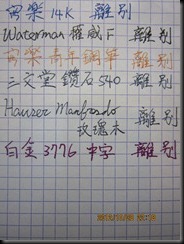 寫樂 14K 離別
Waterman 權威 F 離別
寫樂 青年鋼筆 離別
三文堂 鑽石 540 離別
Hauser Manfredo
玫瑰木 離別
白金 3776 中字 離別